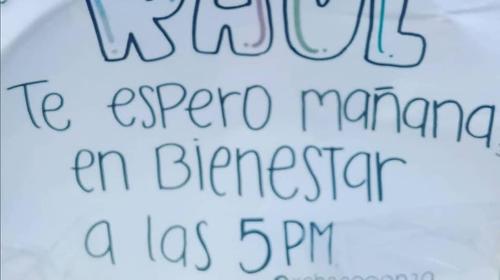 RAUL
Te espero mañana
en Bienestar
a las 5 PM